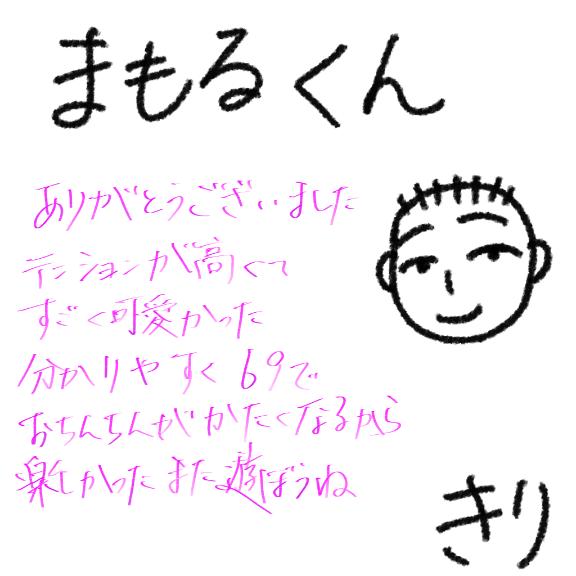 まもるくん
ありがとうございました
テンションが高くて
すごく可愛かった
分かりやすく69で
おちんちんがかたくなるから
楽しかったまた遊ぼうね
きり